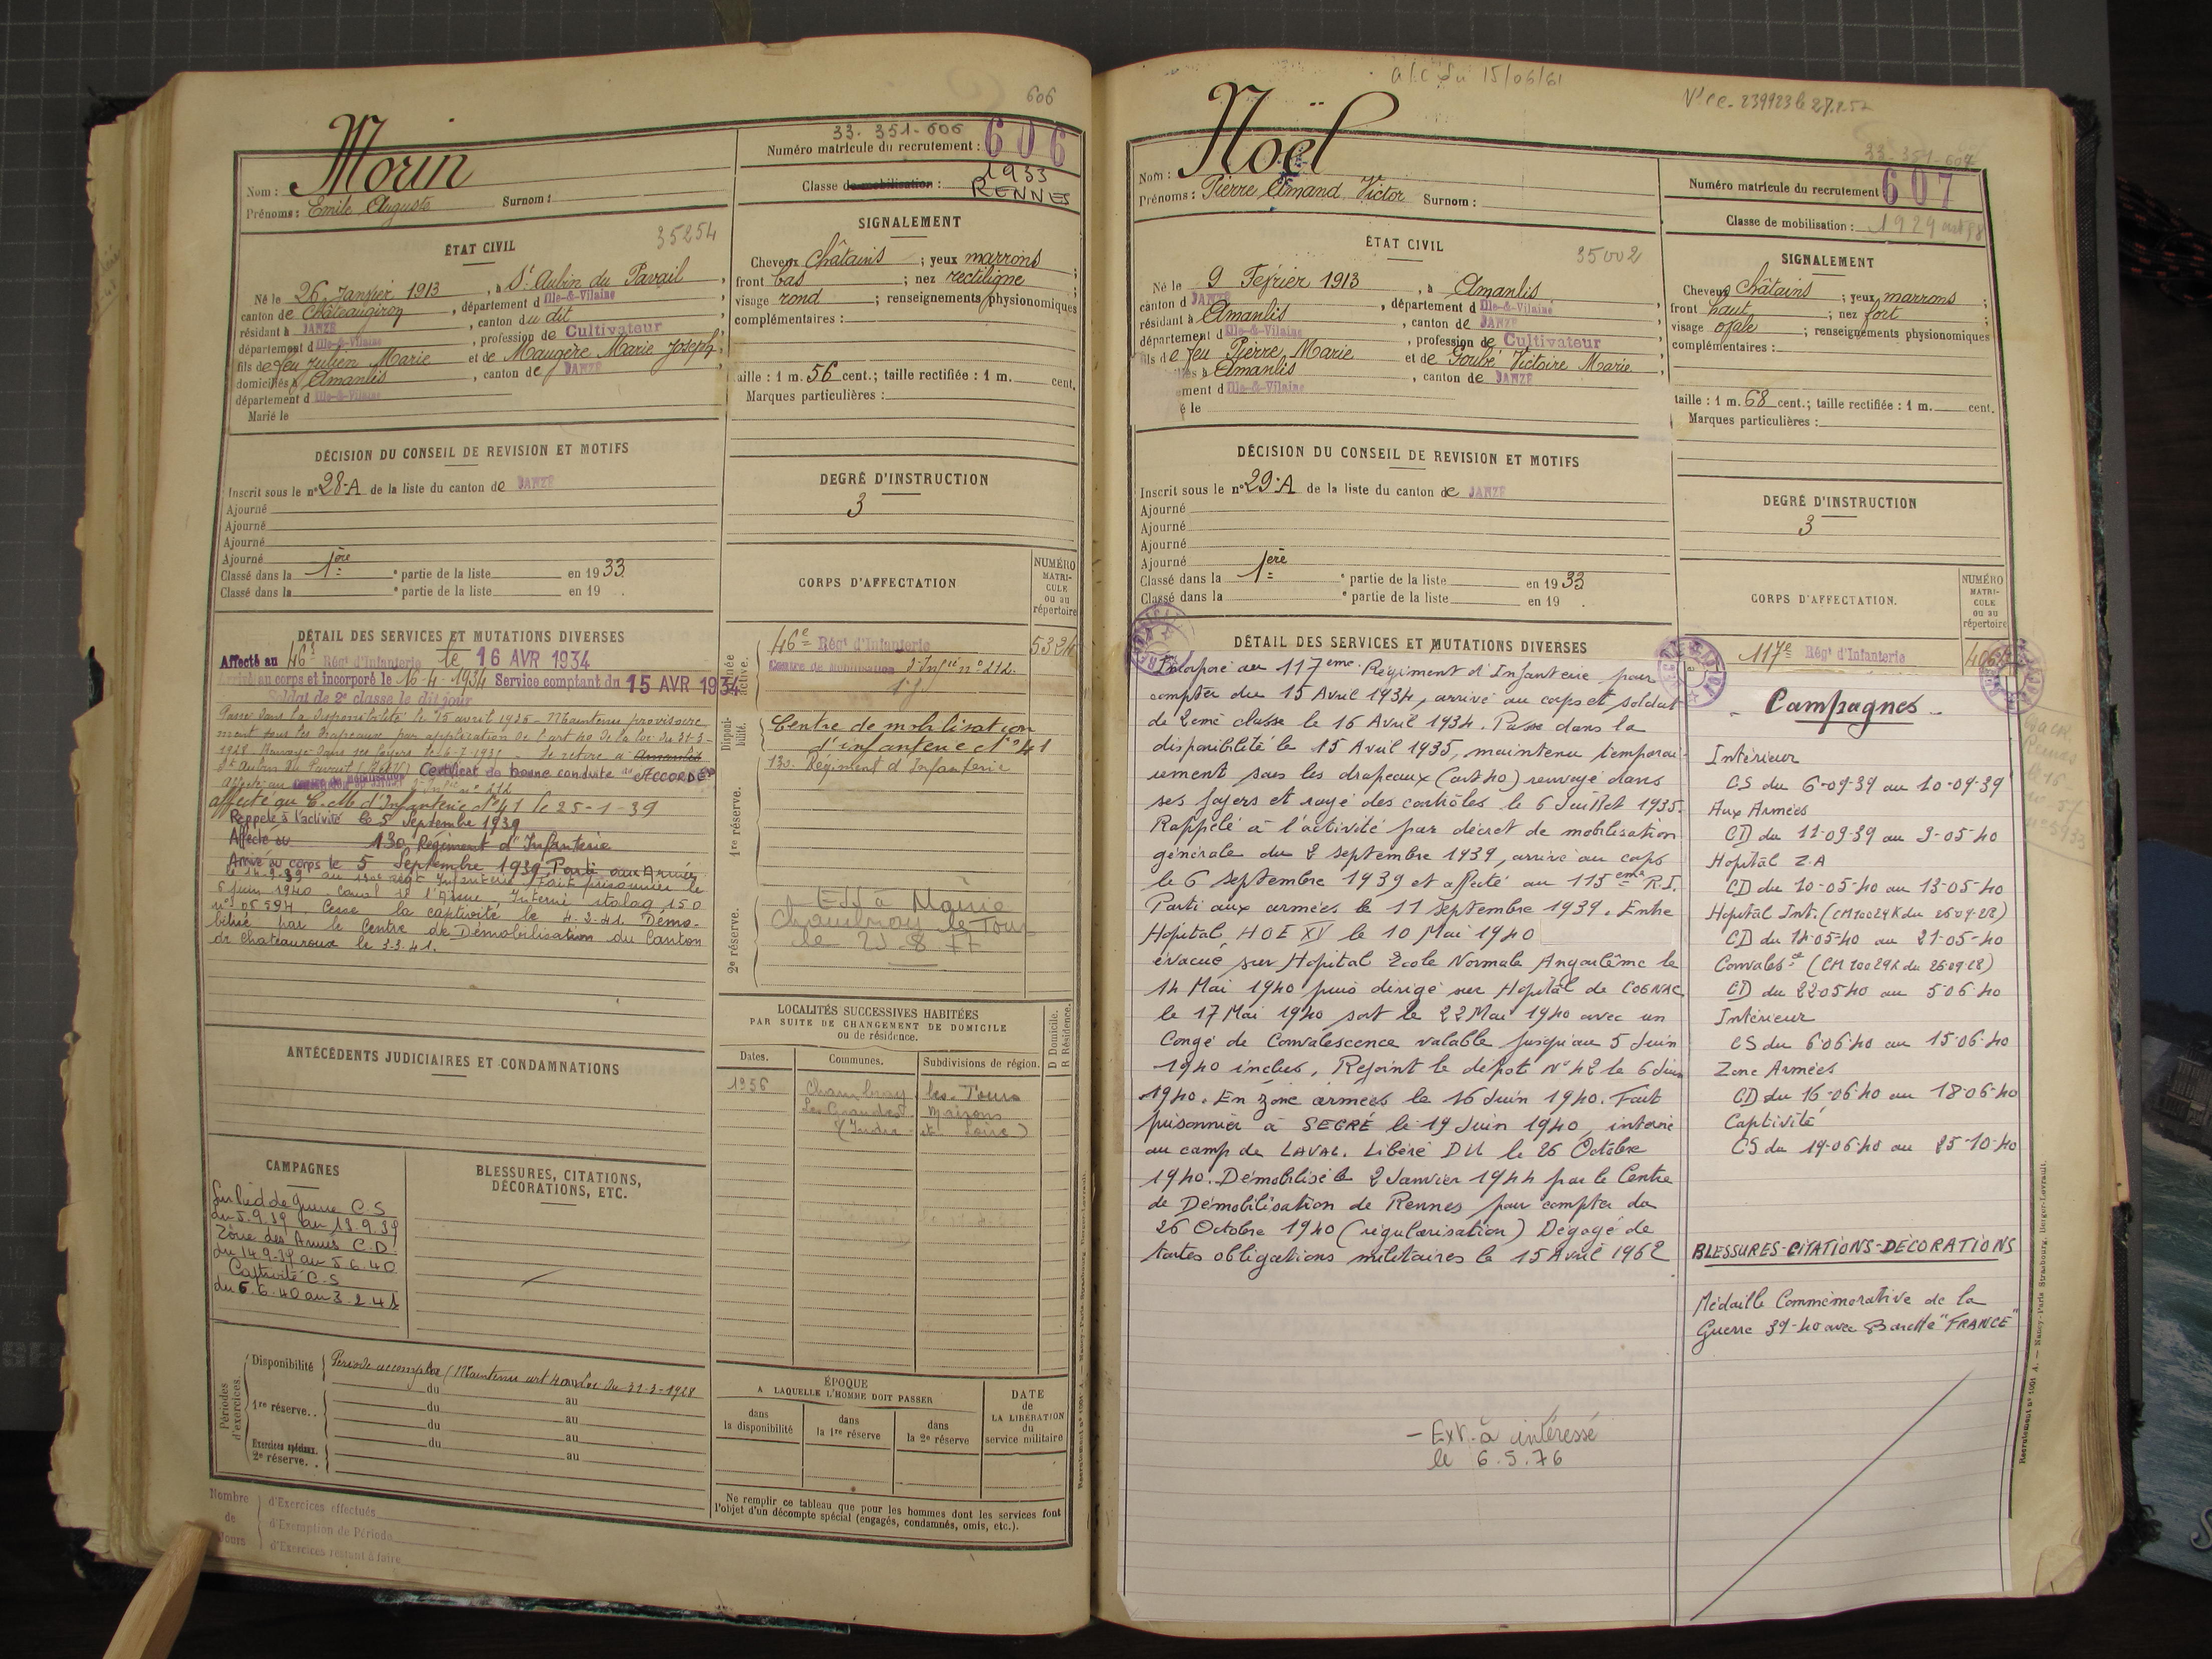 606
33-351-606
Numéro matricule du recrutement : 606
Nom : Morin
Prénoms : Emile Auguste Surnom :
Classe de mobilisation : 1933
RENNES
ÉTAT CIVIL
35254
Né le 26 Janvier 1913, à St Aubin du Pavail,
canton de Châteaugiron, département d Ille-&-Vilaine
résidant à JANZÉ, canton du dit
département d Ille-&-Vilaine, profession de Cultivateur
fils de feu Julien Marie et de Maugère Marie Joseph,
domiciliés à Amanlis, canton de JANZÉ
département d Ille-&-Vilaine
Marié le
SIGNALEMENT
Cheveux châtains ; yeux marrons ;
front bas ; nez rectiligne ;
visage rond ; renseignements physionomiques
complémentaires :
taille : 1 m. 56 cent.; taille rectifiée : 1 m. cent.
Marques particulières :
DÉCISION DU CONSEIL DE REVISION ET MOTIFS
Inscrit sous le n° 28-A de la liste du canton de JANZÉ
Ajourné
Ajourné
Ajourné
Ajourné
Classé dans la 1ère partie de la liste en 1933
Classé dans la partie de la liste en 19 .
DEGRÉ D'INSTRUCTION
3
DÉTAIL DES SERVICES ET MUTATIONS DIVERSES
Affecté au 46e Régt d'Infanterie le 16 AVR 1934
Arrivé au corps et incorporé le 16-4-1934 Service comptant du 15 AVR 1934
Soldat de 2e classe le dit jour
Passé dans la disponibilité le 15 avril 1935 - Maintenu provisoire-
ment sous les drapeaux par application de l'art 40 de la loi du 31-3-
1928. Renvoyé dans ses foyers le 6-7-1935 Se retire à Amanlis
St Aubin du Pavail (I&V) Certificat de bonne conduite ACCORDÉ
Affecté au Centre de mobilisation d'Infie n° 212
affecté au C.M d'Infanterie N°41 le 25-1-39
Rappelé à l'activité le 5 Septembre 1939
Affecté au 130 Régiment d'Infanterie
Arrivé au corps le 5 Septembre 1939. Parti aux Armées
le 14.9.39 au 130e Régt Infanterie Fait prisonnier le
6 juin 1940 Canal de l'Aisne. Interné stalag
Cesse la captivité le 4.2.41. Démo-
bilisé par le Centre de Démobilisation du Canton
de Chateauroux le 3.3.41.
CORPS D'AFFECTATION
NUMÉRO MATRI-CULE ou au répertoire
Armée active.
46e Régt d'Infanterie 5324
Centre de mobilisation d'Infie n° 212
Disponi-bilité.
Centre de mobilisation
d'infanterie N°41
130. Régiment d'Infanterie
1re réserve.
2e réserve.
Mairie
Chambray le Tours
le 23.8.77
LOCALITÉS SUCCESSIVES HABITÉES
PAR SUITE DE CHANGEMENT DE DOMICILE
ou de résidence.
Dates. Communes. Subdivisions de région. D Domicile. R Résidence.
1956 Chambray les-Tours
Les Grandes Maisons
(Indre et Loire)
ANTÉCÉDENTS JUDICIAIRES ET CONDAMNATIONS
CAMPAGNES
Sur Pied de guerre C.S
du 5.9.39 au 13.9.39
Zône des Armées C.D
du 14.9.39 au 5.6.40
Captivité C.S
du 6.6.40 au 3.2.41
BLESSURES, CITATIONS,
DÉCORATIONS, ETC.
Périodes d'exercices.
Disponibilité Période accomplie (Maintenu art 40 loi du 31-3-1928
du au
1re réserve. . du au
du au
Exercices spéciaux. du au
2e réserve. . au
ÉPOQUE
A LAQUELLE L'HOMME DOIT PASSER
dans la disponibilité
dans la 1re réserve
dans la 2e réserve
DATE de LA LIBÉRATION du service militaire
Ne remplir ce tableau que pour les hommes dont les services font
l'objet d'un décompte spécial (engagés, condamnés, omis, etc.).
Nombre de Jours
d'Exercices effectués
d'Exemption de Période
d'Exercices restant à faire
a/c du 15/06/61
239923 le 27.2.52
33-351-607
Numéro matricule du recrutement 607
Nom : Noël
Prénoms : Pierre Armand Victor Surnom :
Classe de mobilisation : 1929
ÉTAT CIVIL
35002
Né le 9 Février 1913, à Amanlis
canton d JANZÉ, département d Ille-&-Vilaine
résidant à Amanlis, canton de JANZÉ
département d Ille-&-Vilaine, profession de Cultivateur
fils de feu Pierre Marie et de Goubé Victoire Marie,
Amanlis, canton de JANZÉ
ment d Ille-&-Vilaine
é le
SIGNALEMENT
Cheveux châtains ; yeux marrons ;
front haut ; nez fort ;
visage ovale ; renseignements physionomiques
complémentaires :
taille : 1 m. 68 cent.; taille rectifiée : 1 m. cent.
Marques particulières :
DÉCISION DU CONSEIL DE REVISION ET MOTIFS
Inscrit sous le n° 29-A de la liste du canton de JANZÉ
Ajourné
Ajourné
Ajourné
Ajourné
Classé dans la 1ère partie de la liste en 1933
Classé dans la partie de la liste en 19 .
DEGRÉ D'INSTRUCTION
3
CORPS D'AFFECTATION.
NUMÉRO MATRI-CULE ou au répertoire
117e Régt d'Infanterie
DÉTAIL DES SERVICES ET MUTATIONS DIVERSES
Incorporé au 117ème Régiment d'Infanterie pour
compter du 15 Avril 1934, arrivé au corps et soldat
de 2ème classe le 16 Avril 1934. Passé dans la
disponibilité le 15 Avril 1935, maintenu temporai-
rement sous les drapeaux (art 40) renvoyé dans
ses foyers et rayé des contrôles le 6 Juillet 1935.
Rappelé à l'activité par décret de mobilisation
générale du 2 septembre 1939, arrivé au corps
le 6 Septembre 1939 et affecté au 115ème R.I.
Parti aux armées le 11 septembre 1939. Entre
Hopital HOE XV le 10 Mai 1940
évacué sur Hopital Ecole Normale Angoulême le
14 Mai 1940 puis dirigé sur Hopital de COGNAC
le 17 Mai 1940 sort le 22 Mai 1940 avec un
Congé de Convalescence valable jusqu'au 5 Juin
1940 inclus, Rejoint le dépot N°42 le 6 Juin
1940. En zone armées le 16 Juin 1940. Fait
prisonnier à SEGRÉ le 19 Juin 1940, interné
au camp de LAVAL. Libéré DU le 26 Octobre
1940. Démobilisé le 2 Janvier 1944 par le Centre
de Démobilisation de Rennes pour compter du
26 Octobre 1940 (régularisation) Dégagé de
toutes obligations militaires le 15 Avril 1962
- Ext. à intéressé
le 6.5.76
- Campagnes -
Intérieur
CS du 6-09-39 au 10-09-39
Aux Armées
CD du 11-09-39 au 9-05-40
Hopital Z.A
CD du 10-05-40 au 13-05-40
Hopital Int. (CM10029K du 26-09-28)
CD du 14-05-40 au 21-05-40
Convalesce (CM 10029K du 26-09-28)
CD du 22-05-40 au 5-06-40
Intérieur
CS du 6-06-40 au 15-06-40
Zone Armées
CD du 16-06-40 au 18-06-40
Captivité
CS du 19-06-40 au 25-10-40
BLESSURES-CITATIONS-DECORATIONS
Médaille Commémorative de la
Guerre 39-40 avec Barette "FRANCE"